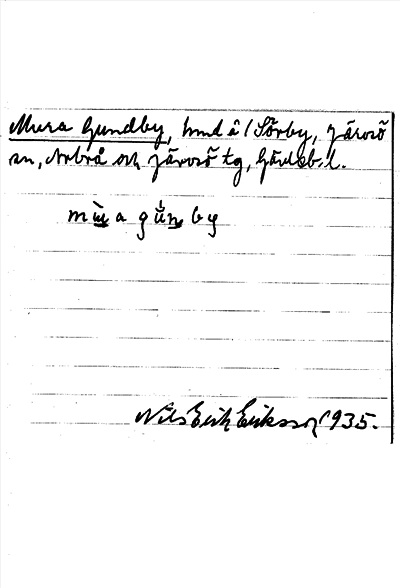 Mura Gundby, hmd å 1 Sörby, Järvsö
sn, Arbrå och Järvsö tg, Gävleb. l.
mùa gùnby
Nils Erik Eriksson 1935.